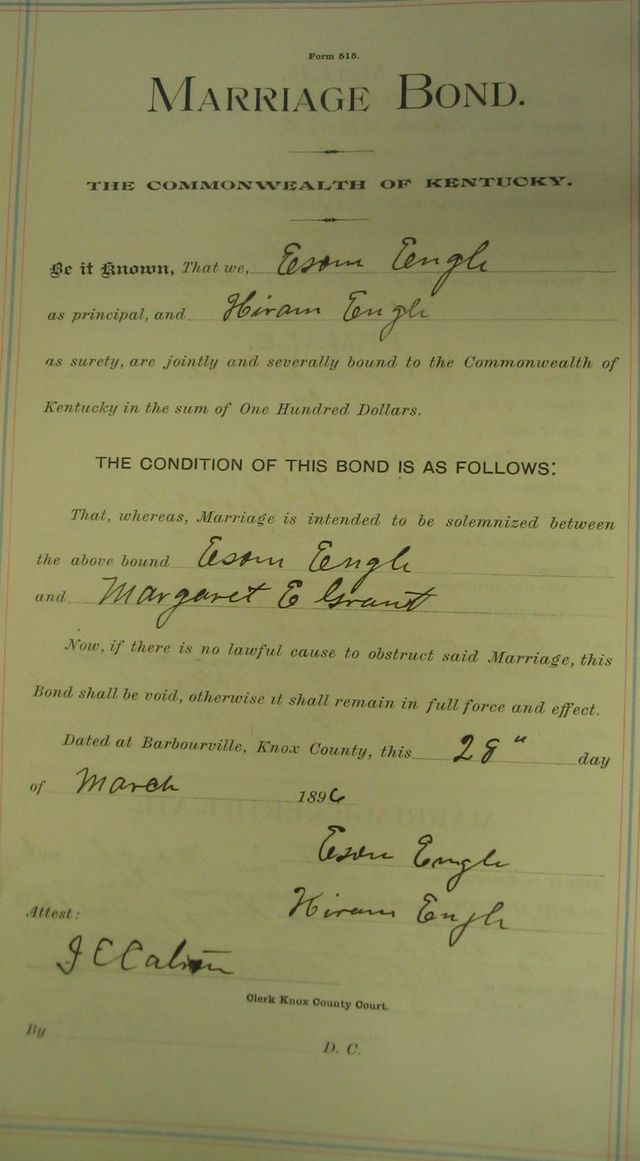 Form 515.
MARRIAGE BOND.
THE COMMONWEALTH OF KENTUCKY.
Be it Known, That we, Esom Engle
as principal, and Hiram Engle
as surety, are jointly and severally bound to the Commonwealth of
Kentucky in the sum of One Hundred Dollars.
THE CONDITION OF THIS BOND IS AS FOLLOWS:
That, whereas, Marriage is intended to be solemnized between
the above bound Esom Engle
and Margaret E Grant
Now, if there is no lawful cause to obstruct said Marriage, this
Bond shall be void, otherwise it shall remain in full force and effect.
Dated at Barbourville, Knox County, this 28" day
of March 1896
Esom Engle
Hiram Engle
Attest:
J C C
Clerk Knox County Court.
By D. C.